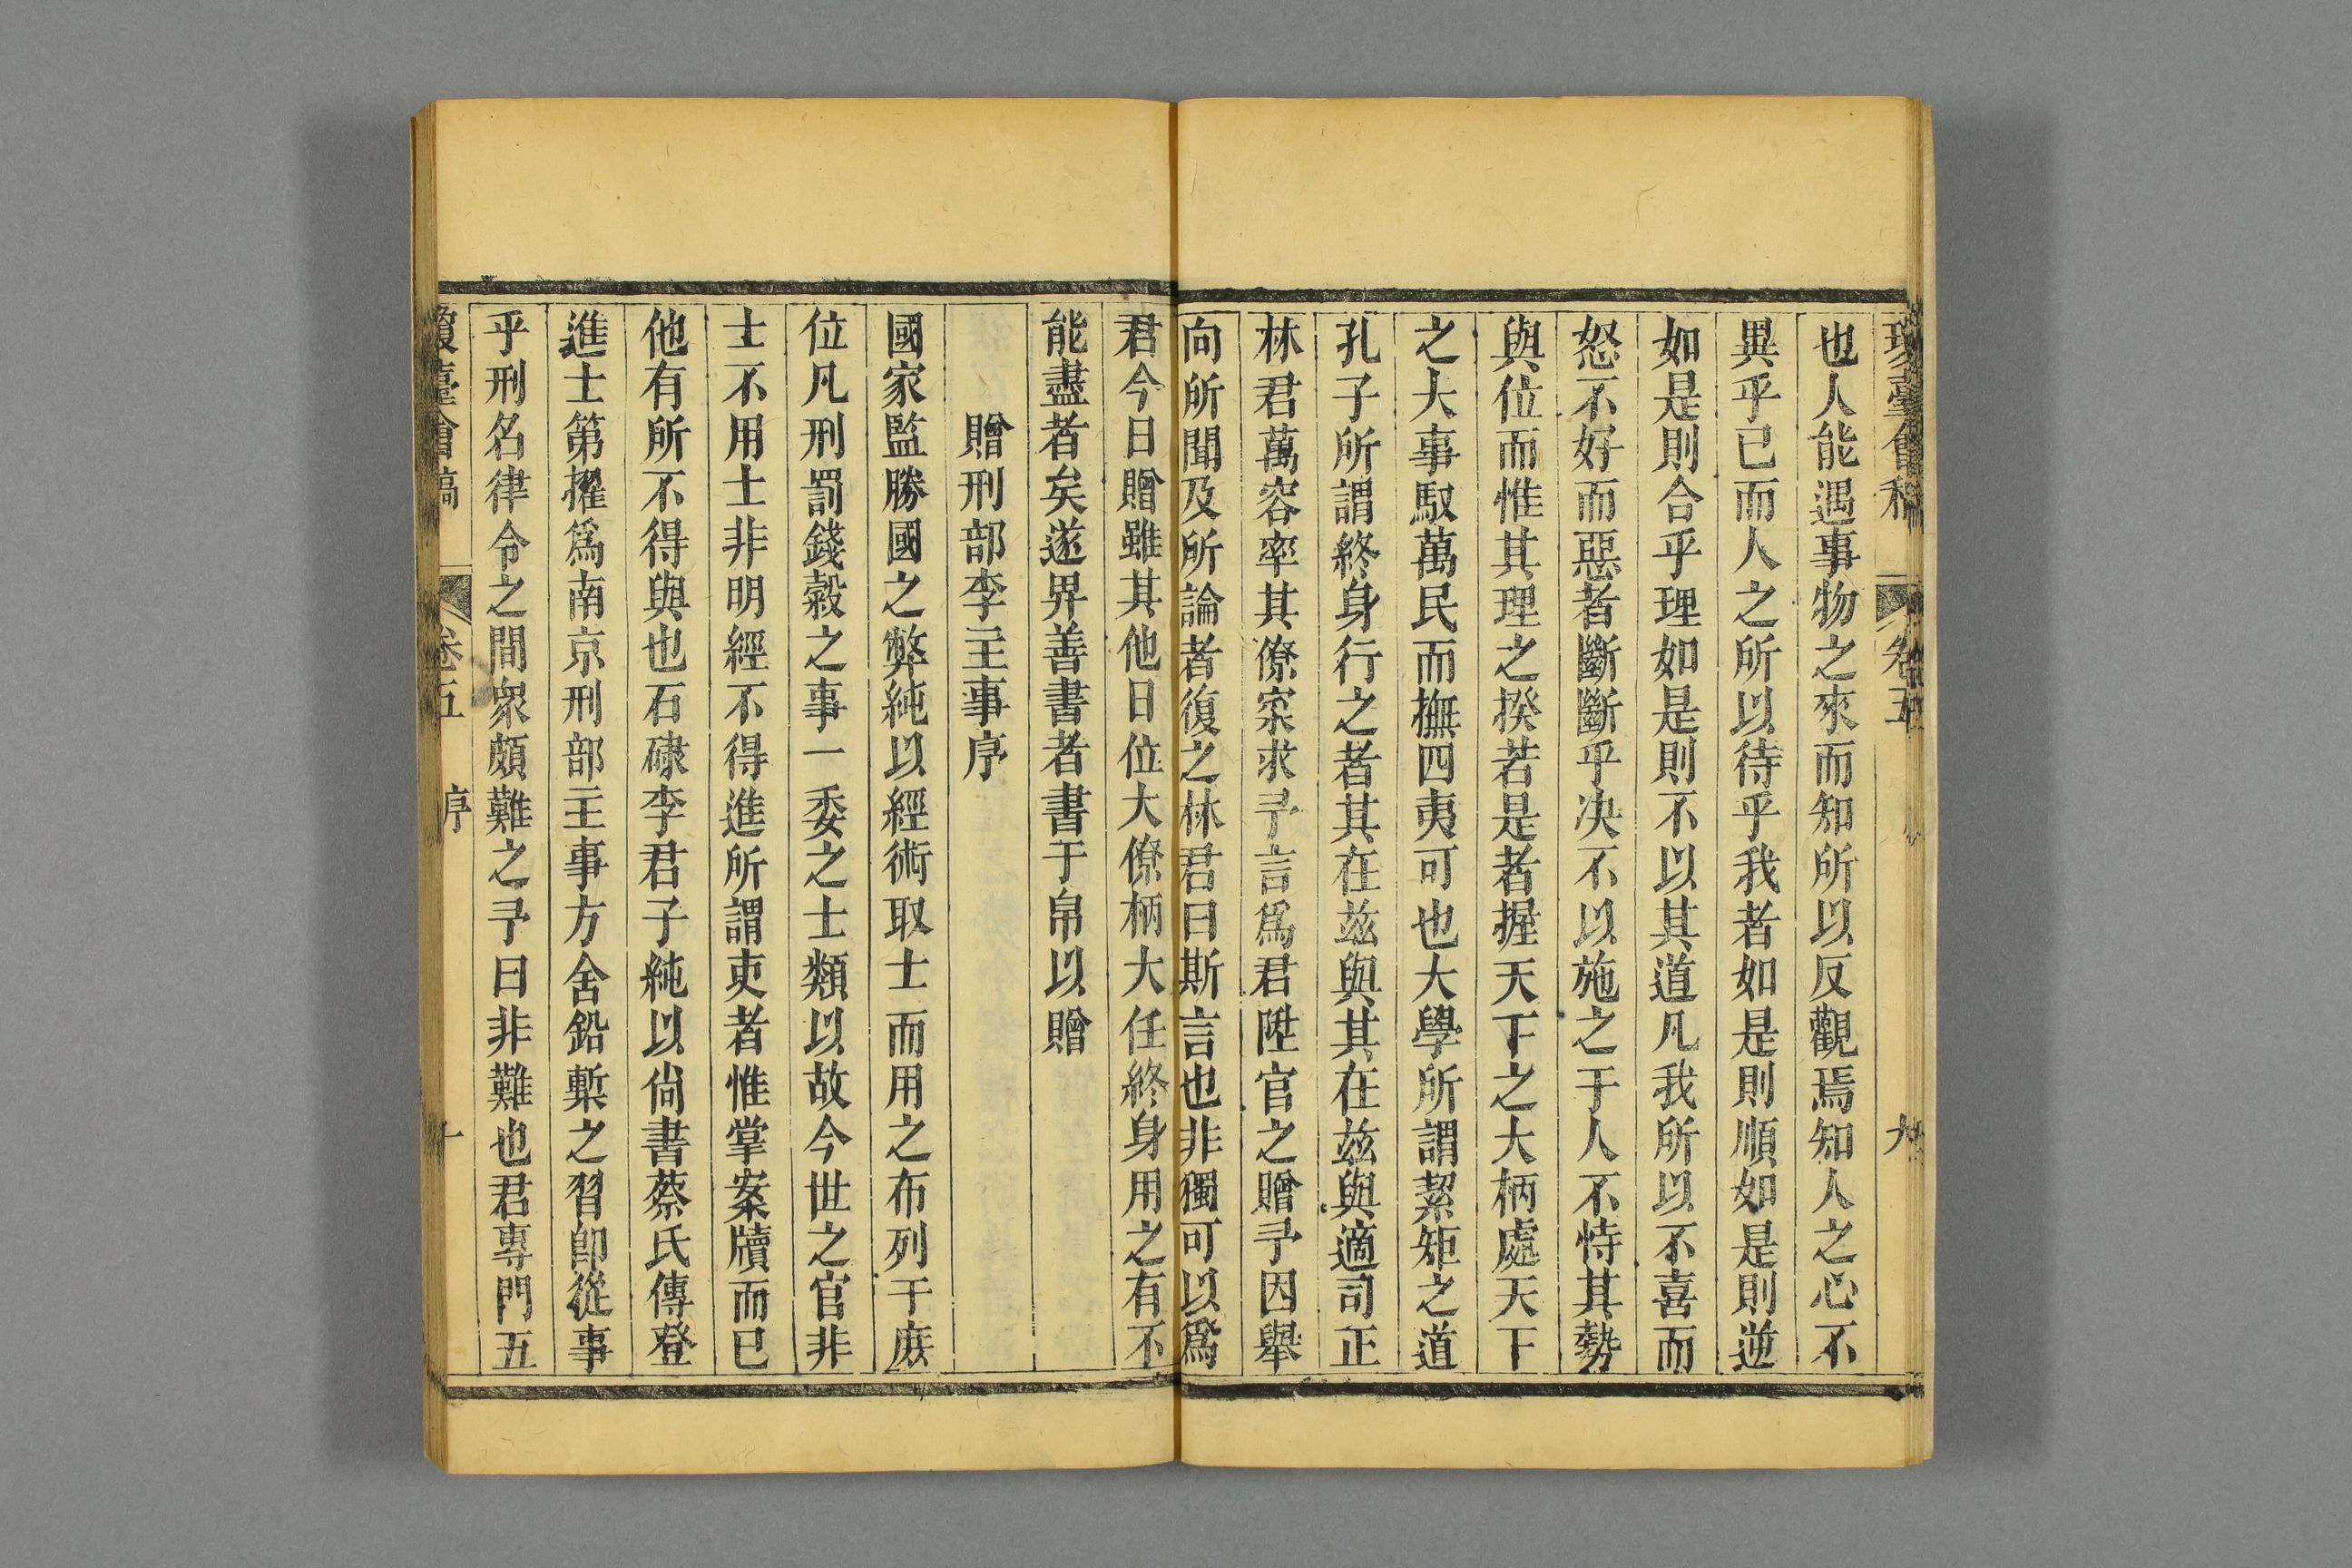 瓊臺會稿 卷五 九
也人能遇事物之來而知所以反觀焉知人之心不
異乎已而人之所以待乎我者如是則順如是則逆
如是則合乎理如是則不以其道凡我所以不喜而
怒不好而惡者斷斷乎决不以施之于人不恃其勢
與位而惟其理之揆若是者握天下之大柄處天下
之大事馭萬民而撫四夷可也大學所謂絜矩之道
孔子所謂終身行之者其在兹與其在兹與適司正
林君萬容率其僚寀求予言爲君陞官之贈予因舉
向所聞及所論者復之林君曰斯言也非獨可以爲
君今日贈雖其他日位大僚柄大任終身用之有不
能盡者矣遂畀善書者書于帛以贈
贈刑部李主事序
國家監勝國之弊純以經術取士而用之布列于庶
位凡刑罰錢穀之事一委之士類以故今世之官非
士不用士非明經不得進所謂吏者惟掌案牘而已
他有所不得與也石碌李君子純以尙書蔡氏傳登
進士第擢爲南京刑部主事方舍鉛槧之習卽從事
乎刑名律令之間衆頗難之予曰非難也君專門五
瓊臺會稿 卷五 序 十